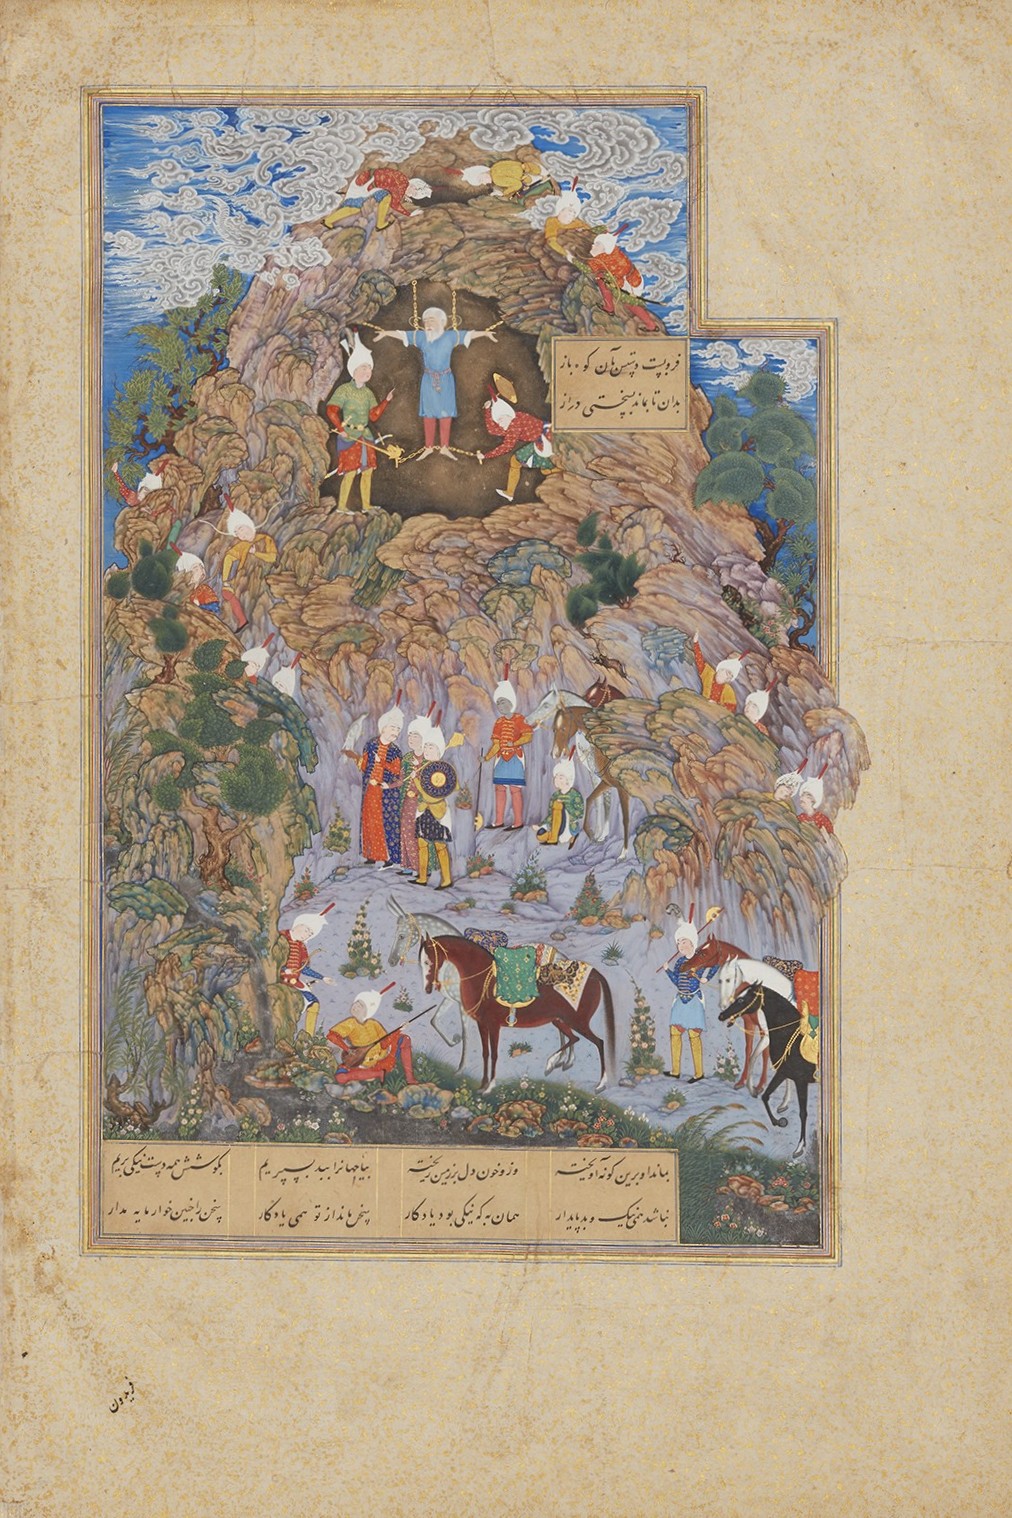 فروبست دستش بر آن کوه باز
بدان تا بماند بسختی دراز
بماند او برین گونه آویخته
وزو خون دل بر زمین ریخته
بیا تا جهانرا ببد نسپریم
بکوشش همه دست نیکی بریم
نباشد همی نیک و بد پایدار
همان به که نیکی بود یادگار
سخن ماند از تو همی یادگار
سخن را چنین خوار مایه مدار
فریدون